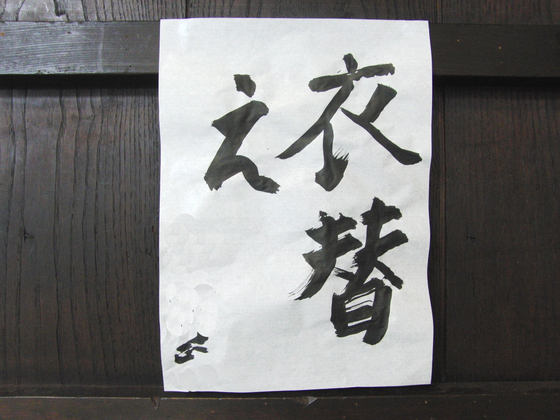 衣替
え